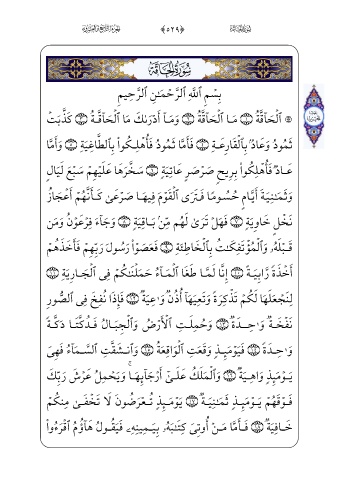 سُورَةُ الحَاقَّةِ ﴿٥٦٩﴾ الجزء التاسع والعشرون
سُورَةُ الحَاقَّةِ
بِسْمِ اللَّهِ الرَّحْمَٰنِ الرَّحِيمِ
۞ الْحَاقَّةُ ١ مَا الْحَاقَّةُ ٢ وَمَا أَدْرَىٰكَ مَا الْحَاقَّةُ ٣ كَذَّبَتْ
ثَمُودُ وَعَادٌ بِالْقَارِعَةِ ٤ فَأَمَّا ثَمُودُ فَأُهْلِكُوا۟ بِالطَّاغِيَةِ ٥ وَأَمَّا
عَادٌ فَأُهْلِكُوا۟ بِرِيحٍ صَرْصَرٍ عَاتِيَةٍ ٦ سَخَّرَهَا عَلَيْهِمْ سَبْعَ لَيَالٍ
وَثَمَٰنِيَةَ أَيَّامٍ حُسُومًا فَتَرَى الْقَوْمَ فِيهَا صَرْعَىٰ كَأَنَّهُمْ أَعْجَازُ
نَخْلٍ خَاوِيَةٍ ٧ فَهَلْ تَرَىٰ لَهُم مِّنۢ بَاقِيَةٍ ٨ وَجَآءَ فِرْعَوْنُ وَمَن
قَبْلَهُۥ وَالْمُؤْتَفِكَٰتُ بِالْخَاطِئَةِ ٩ فَعَصَوْا۟ رَسُولَ رَبِّهِمْ فَأَخَذَهُمْ
أَخْذَةً رَّابِيَةً ١٠ إِنَّا لَمَّا طَغَا الْمَآءُ حَمَلْنَٰكُمْ فِى الْجَارِيَةِ ١١
لِنَجْعَلَهَا لَكُمْ تَذْكِرَةً وَتَعِيَهَآ أُذُنٌ وَٰعِيَةٌ ١٢ فَإِذَا نُفِخَ فِى الصُّورِ
نَفْخَةٌ وَٰحِدَةٌ ١٣ وَحُمِلَتِ الْأَرْضُ وَالْجِبَالُ فَدُكَّتَا دَكَّةً
وَٰحِدَةً ١٤ فَيَوْمَئِذٍ وَقَعَتِ الْوَاقِعَةُ ١٥ وَانشَقَّتِ السَّمَآءُ فَهِىَ
يَوْمَئِذٍ وَاهِيَةٌ ١٦ وَالْمَلَكُ عَلَىٰٓ أَرْجَآئِهَا ۚ وَيَحْمِلُ عَرْشَ رَبِّكَ
فَوْقَهُمْ يَوْمَئِذٍ ثَمَٰنِيَةٌ ١٧ يَوْمَئِذٍ تُعْرَضُونَ لَا تَخْفَىٰ مِنكُمْ
خَافِيَةٌ ١٨ فَأَمَّا مَنْ أُوتِىَ كِتَٰبَهُۥ بِيَمِينِهِۦ فَيَقُولُ هَآؤُمُ اقْرَءُوا۟